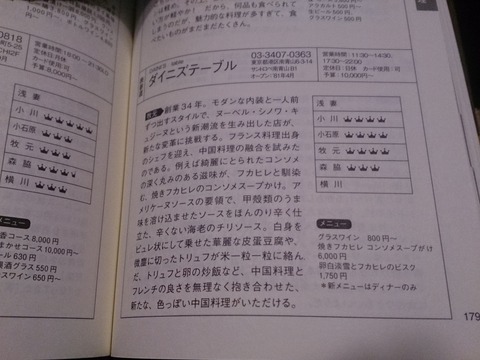 べたいものがまだまだたくさん。
0818
営業時間/18:00~21:30
カード使用/可
予算/8,000円~
浅妻
小川
小石原
牧元
森脇
横川
メニュー
香コース 8,000円
まかせコース 10,000円~
ール 630円
興酒グラス 550円
イスワイン 650円~
生ビール 500円
DINING'S table
ダイニズテーブル
03-3407-0363
東京都港区南青山6-3-14
サントロペ南青山B1
オープン/'81年4月
営業時間/11:30~14:30
17:30~22:00
定休日/日休 カード使用/可
予算/10,000円~
創業34年。モダンな内装と一人前
ずつ出すスタイルで、ヌーベル・シノワ・キ
ュジーヌという新潮流を生み出した店が、
新たな変革に挑戦する。フランス料理出身
のシェフを迎え、中国料理の融合を試みた
のである。例えば綺麗にとられたコンソメ
の深く丸みのある滋味が、フカヒレと馴染
む、焼きフカヒレのコンソメスープがけ。ア
メリケーヌソースの要領で、甲殻類のうま
味を溶け込ませたソースをほんのり辛く仕
立た、辛くない海老のチリソース。白身を
ピュレ状にして乗せた華麗な皮蛋豆腐や、
微塵に切ったトリュフが米一粒一粒に絡ん
だ、トリュフと卵の炒飯など、中国料理と
フレンチの良さを無理なく抱き合わせた、
新たな、色っぽい中国料理がいただける。
浅妻
小川
小石原
牧元
森脇
横川
メニュー
グラスワイン 800円~
焼きフカヒレ コンソメスープがけ
6,000円
卵白淡雪とフカヒレのビスク
1,750円
*新メニューはディナーのみ
179